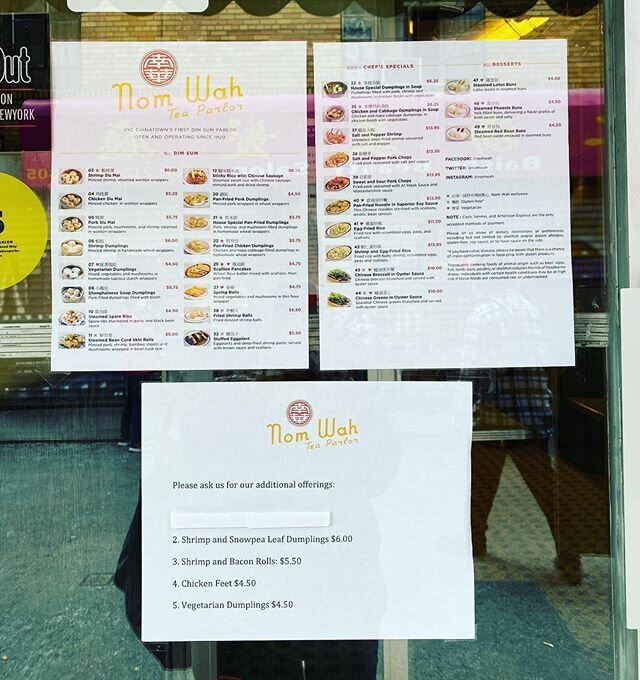 Out
ON
EWYORK
Nom Wah
Tea Parlor
NYC CHINATOWN'S FIRST DIM SUM PARLOR
OPEN AND OPERATING SINCE 1920
DIM SUM
03
Shrimp Siu Mai
$6.00
Minced shrimp, steamed wonton wrappers
04
Chicken Siu Mai
$5.25
Minced chicken in wonton wrappers
05
Pork Siu Mai
$5.75
Minced pork, mushrooms, and shrimp steamed in wonton wrappers
06
Shrimp Dumplings
$6.00
Minced shrimp in handmade wheat wrappers
07
Vegetarian Dumplings
$4.50
Mixed vegetables and mushrooms in
08
Shanghainese Soup Dumplings
$5.75
Pork dumplings filled with broth
10
Steamed Spare Ribs
$4.50
Spare ribs marinated in garlic and black bean sauce
11
Steamed Bean Curd Skin Rolls
$5.00
Minced pork, shrimp, bamboo shoots and mushrooms wrapped in bean curd skin
12
Sticky Rice with Chinese Sausage
Steamed sweet rice with Chinese sausage, minced pork and dried shrimp
20
Pan-Fried Pork Dumplings
Minced pork wrapped in wheat wrappers
21
House Special Pan-Fried Dumplings
Pork, shrimp, and mushroom-filled dumplings
22
Pan-Fried Chicken Dumplings
Chicken and napa cabbage-filled dumplings in
25
Scallion Pancakes
Wheat flour batter mixed with scallions, then fried
27
Spring Rolls
Mixed vegetables and mushrooms in thin flour
28
Fried Shrimp Balls
Fried minced shrimp balls
32
Stuffed Eggplant
Eggplants and deep-fried shrimp paste, served with brown sauce and scallions
CHEF'S SPECIALS
33
House Special Dumplings in Soup
$6.25
Dumplings filled with pork, shrimp and mushrooms in chicken broth with vegetables
35
Chicken and Cabbage Dumplings in Soup
$6.25
Chicken and napa cabbage dumplings in chicken broth with vegetables
37
Salt and Pepper Shrimp
$13.95
Unpeeled deep-fried shrimp seasoned with salt and pepper
38
Salt and Pepper Pork Chops
$13.95
Fried pork seasoned with salt and pepper
39
Sweet and Sour Pork Chops
$13.95
Fried pork seasoned with A1 Steak Sauce and Worcestershire sauce
40
Pan-Fried Noodle in Superior Soy Sauce
$9.50
Thin Chinese noodles stir-fried with scallions, onions, bean sprouts
41
Egg-Fried Rice
$11.50
Fried rice with scrambled eggs, peas, and scallions
42
Shrimp and Egg-Fried Rice
$13.95
Fried rice with baby shrimp, scrambled eggs, peas, and scallions
43
Chinese Broccoli in Oyster Sauce
$10.00
Chinese broccoli blanched and served with oyster sauce
44
Chinese Greens in Oyster Sauce
$10.00
Seasonal Chinese greens blanched and served with oyster sauce
DESSERTS
47
Steamed Lotus Buns
$4.50
Lotus paste in steamed buns
48
Steamed Phoenix Buns
$4.50
Yolk-filled buns, delivering a flavor profile of both sweet and salty
49
Steamed Red Bean Buns
$4.50
Red bean paste encased in steamed buns
FACEBOOK: @nomwah
TWITTER: @nomwah
INSTAGRAM: @nomwah
Nom Wah exclusive
Gluten-free*
Vegetarian
NOTE: Cash, Venmo, and American Express are the only accepted methods of payment.
Please let us know of dietary restrictions or preferences, including but not limited to: shellfish and/or gluten allergies, gluten-free soy sauce, or to have sauce on the side.
*If you have celiac disease, please be aware that there is a chance of cross-contamination in food prep with gluten products.
Thoroughly cooking foods of animal origin such as beef, eggs, fish, lamb, pork, poultry or shellfish reduces the risk of foodborne illness. Individuals with certain health conditions may be at high risk if these foods are consumed raw or undercooked.
Nom Wah
Tea Parlor
Please ask us for our additional offerings:
2. Shrimp and Snowpea Leaf Dumplings $6.00
3. Shrimp and Bacon Rolls: $5.50
4. Chicken Feet $4.50
5. Vegetarian Dumplings $4.50